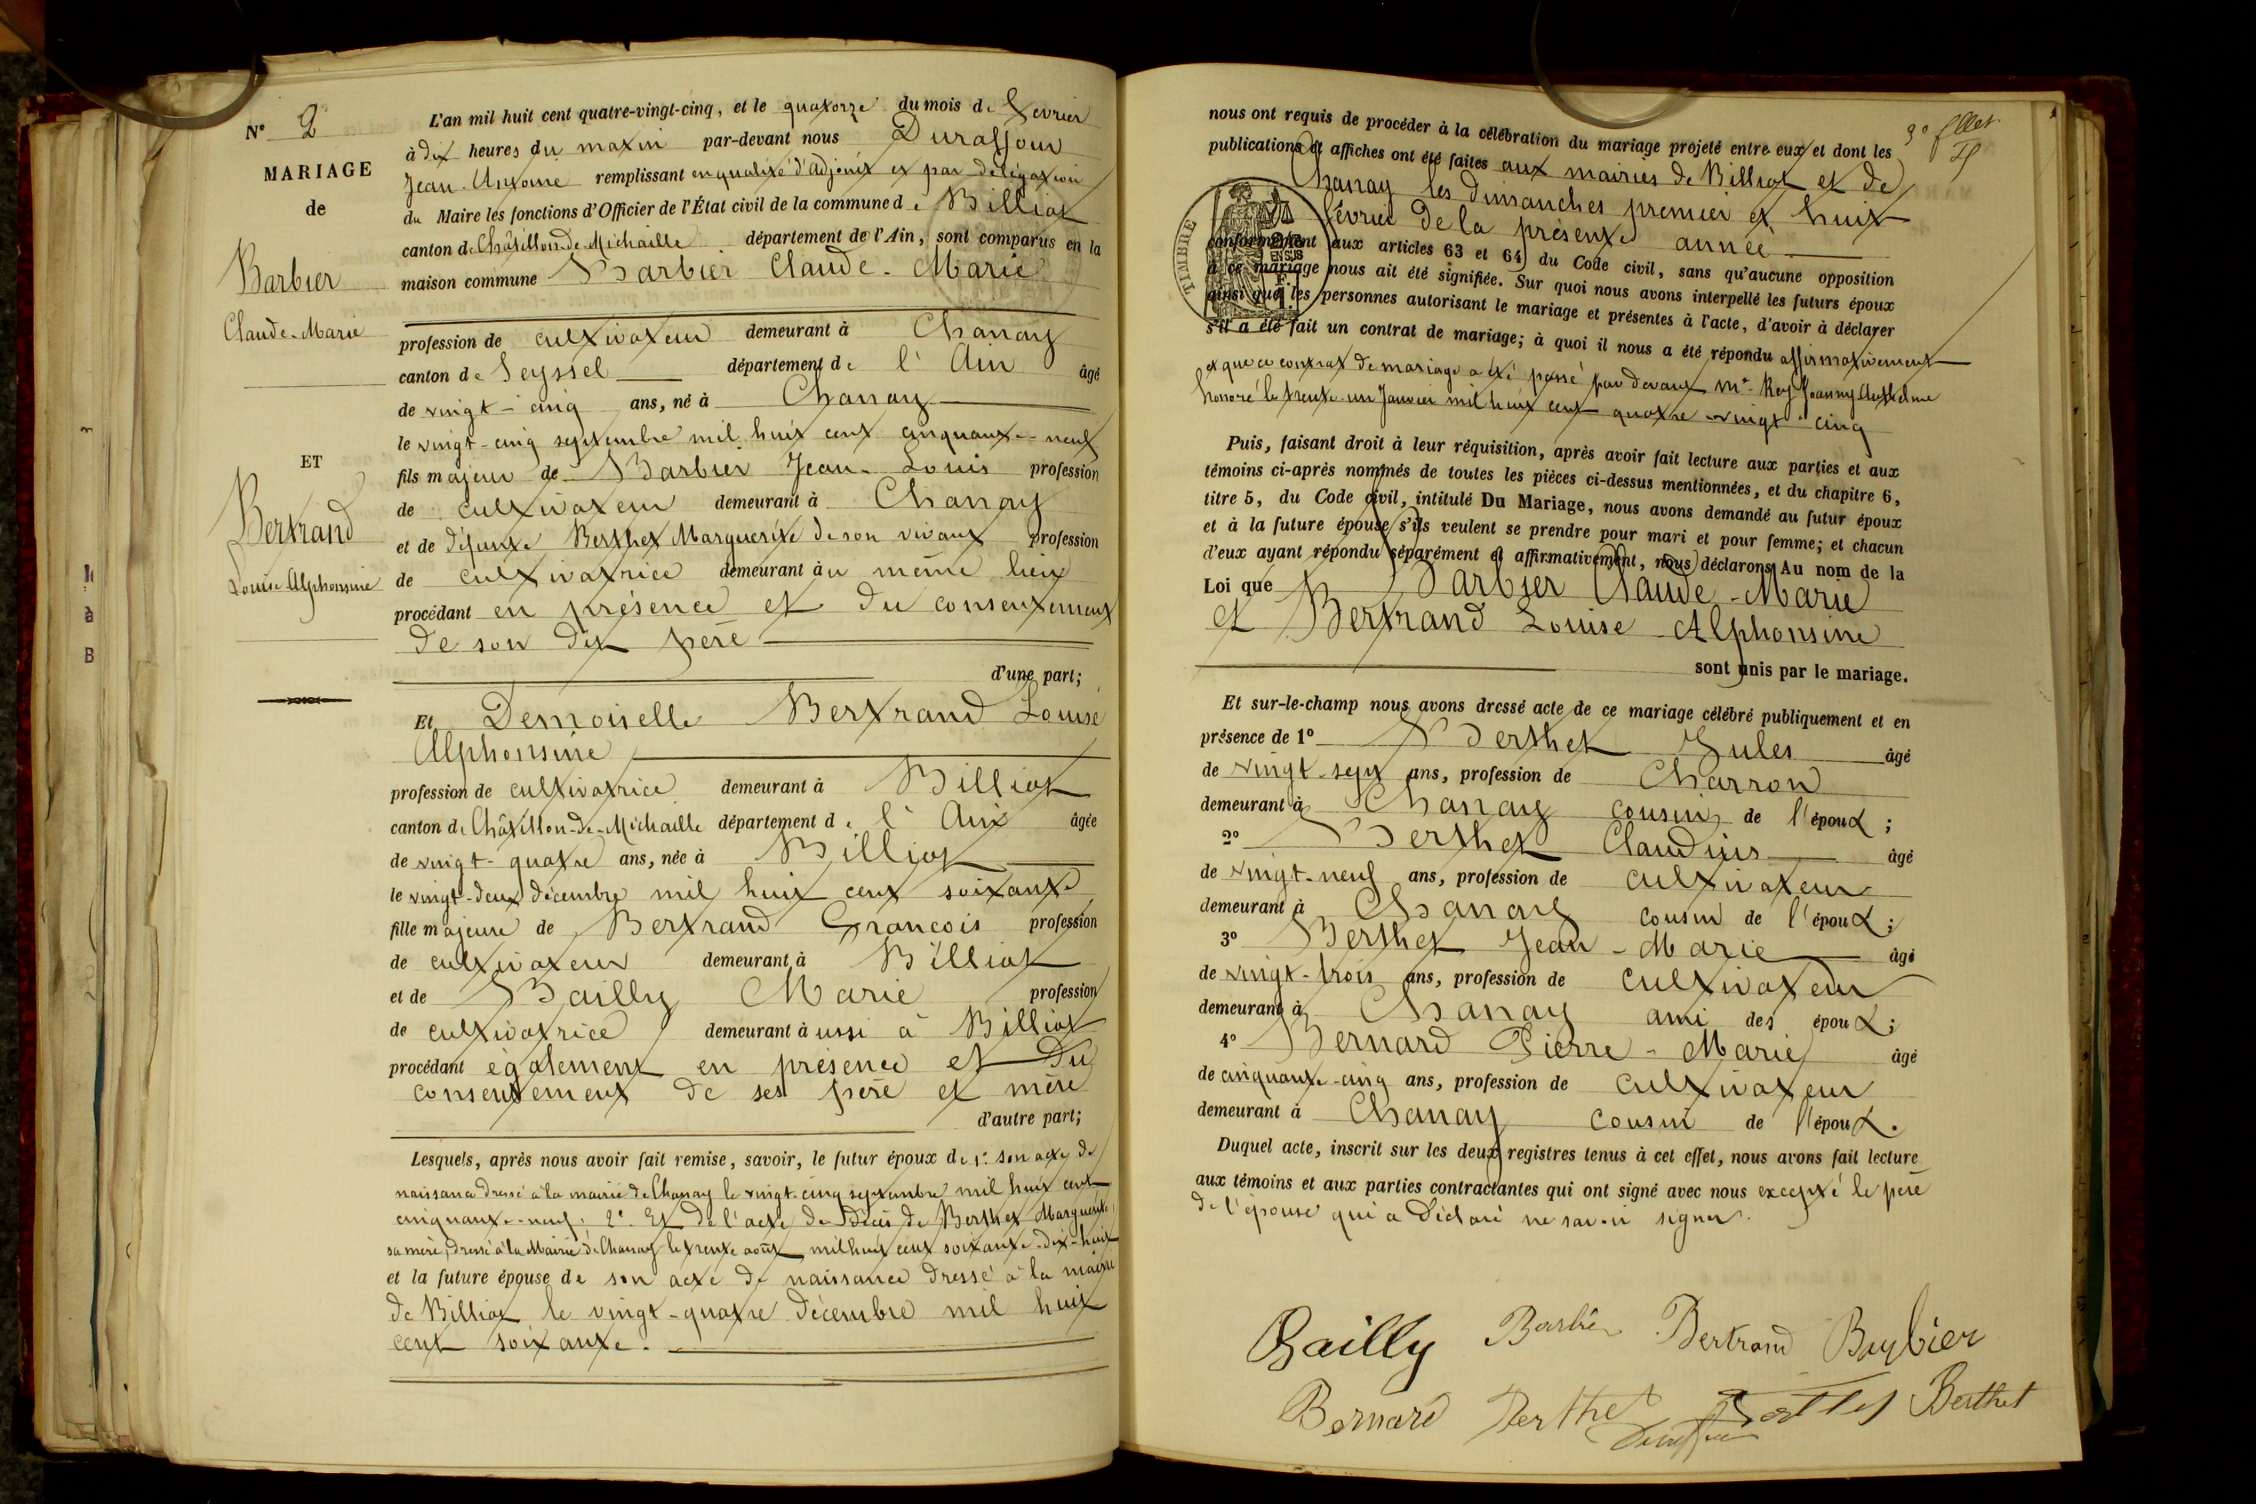 N° 2
MARIAGE
de
Barbier
Claude-Marie
ET
Bertrand
Louise Alphonsine
L'an mil huit cent quatre-vingt-cinq, et le quatorze du mois de Février
à dix heures du matin par-devant nous Duraffour
Jean-Antoine remplissant en qualité d'adjoint et par délégation
du Maire les fonctions d'Officier de l'État civil de la commune de Billiat
canton de Châtillon-de-Michaille département de l'Ain, sont comparus en la
maison commune Barbier Claude-Marie
profession de cultivateur demeurant à Chanay
canton de Seyssel département de l'Ain âgé
de vingt-cinq ans, né à Chanay
le vingt-cinq septembre mil huit cent cinquante-neuf
fils majeur de Barbier Jean-Louis profession
de cultivateur demeurant à Chanay
et de défunte Berthet Marguerite de son vivant profession
de cultivatrice demeurant àu même lieu
procédant en présence et du consentement
de son dit père
d'une part;
Et Demoiselle Bertrand Louise
Alphonsine
profession de cultivatrice demeurant à Billiat
canton de Châtillon-de-Michaille département de l'Ain âgée
de vingt-quatre ans, née à Billiat
le vingt-deux décembre mil huit cent soixante
fille majeure de Bertrand François profession
de cultivateur demeurant à Billiat
et de Bailly Marie profession
de cultivatrice demeurant àussi à Billiat
procédant également en présence et du
consentement de ses père et mère
d'autre part;
Lesquels, après nous avoir fait remise, savoir, le futur époux de 1° son acte de
naissance dressé à la mairie de Chanay le vingt-cinq septembre mil huit cent
cinquante-neuf; 2° Et de l'acte de décès de Berthet Marguerite,
sa mère, dressé à la Mairie de Chanay le trente août mil huit cent soixante-dix-huit
et la future épouse de son acte de naissance dressé à la mairie
de Billiat le vingt-quatre décembre mil huit
cent soixante.
3° fllet
nous ont requis de procéder à la célébration du mariage projeté entre eux et dont les
publications et affiches ont été faites aux mairies de Billiat et de
Chanay les dimanches premier et huit
février de la présente année
TIMBRE
conformément aux articles 63 et 64 du Code civil, sans qu'aucune opposition
à ce mariage nous ait été signifiée. Sur quoi nous avons interpellé les futurs époux
ainsi que les personnes autorisant le mariage et présentes à l'acte, d'avoir à déclarer
s'il a été fait un contrat de mariage; à quoi il nous a été répondu affirmativement
et que ce contrat de mariage a été passé par devant Me Rey Joanny Anthelme
honoré le trente-un Janvier mil huit cent quatre-vingt-cinq
Puis, faisant droit à leur réquisition, après avoir fait lecture aux parties et aux
témoins ci-après nommés de toutes les pièces ci-dessus mentionnées, et du chapitre 6,
titre 5, du Code civil, intitulé Du Mariage, nous avons demandé au futur époux
et à la future épouse s'ils veulent se prendre pour mari et pour femme; et chacun
d'eux ayant répondu séparément et affirmativement, nous déclarons Au nom de la
Loi que Barbier Claude-Marie
et Bertrand Louise-Alphonsine
sont unis par le mariage.
Et sur-le-champ nous avons dressé acte de ce mariage célébré publiquement et en
présence de 1° Berthet Jules âgé
de vingt-sept ans, profession de Charron
demeurant à Chanay cousin de l'époux;
2° Berthet Claudius âgé
de vingt-neuf ans, profession de cultivateur
demeurant à Chanay cousin de l'époux;
3° Berthet Jean-Marie âgé
de vingt-trois ans, profession de cultivateur
demeurant à Chanay ami des époux;
4° Bernard Pierre-Marie âgé
de cinquante-cinq ans, profession de cultivateur
demeurant à Chanay cousin de l'époux.
Duquel acte, inscrit sur les deux registres tenus à cet effet, nous avons fait lecture
aux témoins et aux parties contractantes qui ont signé avec nous excepté le père
de l'épouse qui a déclaré ne savoir signer.
Bailly Barbier Bertrand Barbier
Bernard Berthet Berthet Berthet
Duraffour